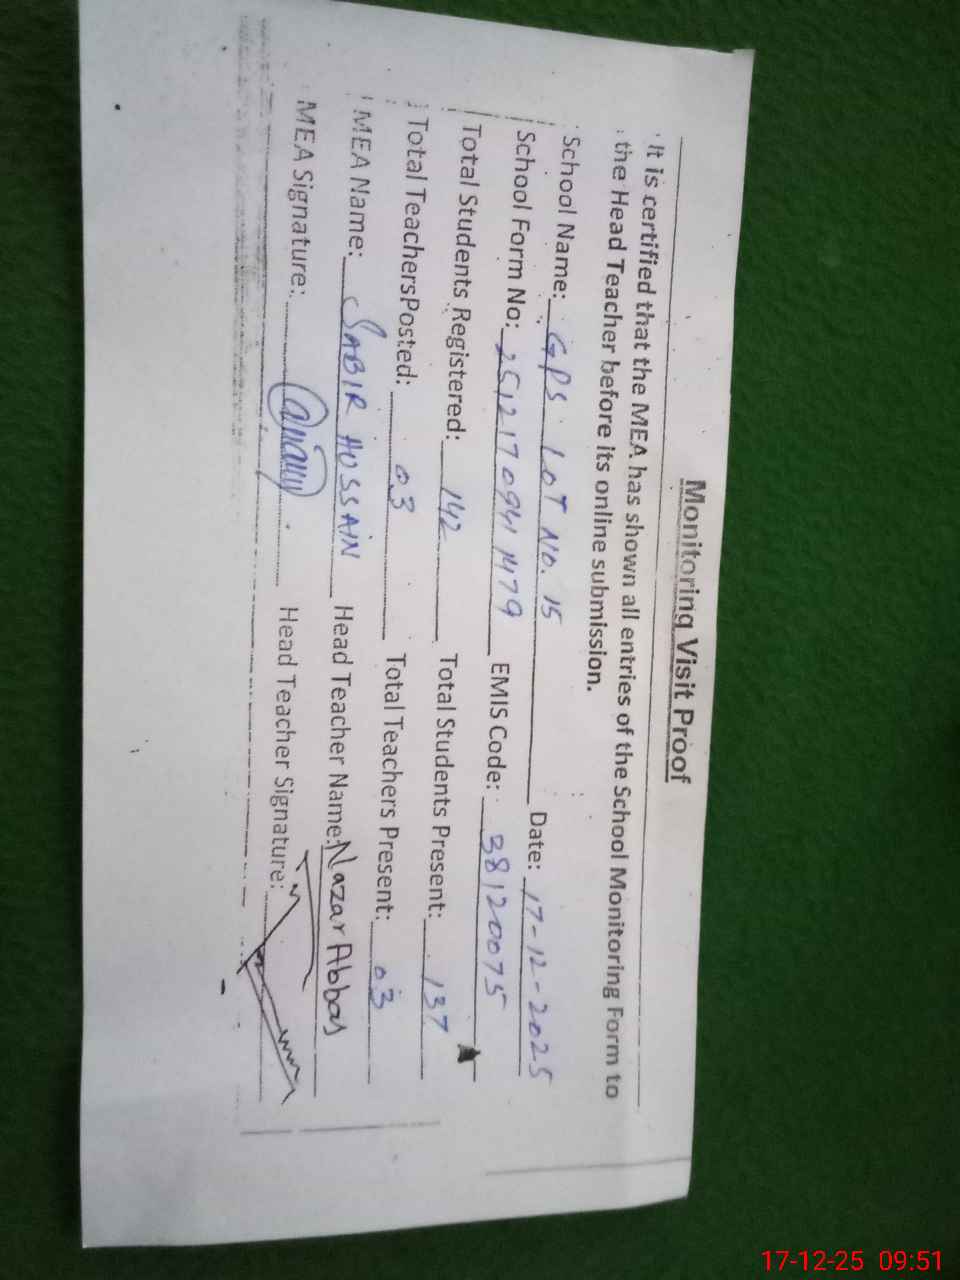 Monitoring Visit Proof
It is certified that the MEA has shown all entries of the School Monitoring Form to
the Head Teacher before its online submission.
School Name: GPS LOT NO. 15 Date: 17-12-2025
School Form No: 25121709411479 EMIS Code: 38120075
Total Students Registered: 142 Total Students Present: 137
Total TeachersPosted: 03 Total Teachers Present: 03
MEA Name: SABIR HUSSAIN Head Teacher Name: Nazar Abbas
MEA Signature: Head Teacher Signature:
17-12-25 09:51